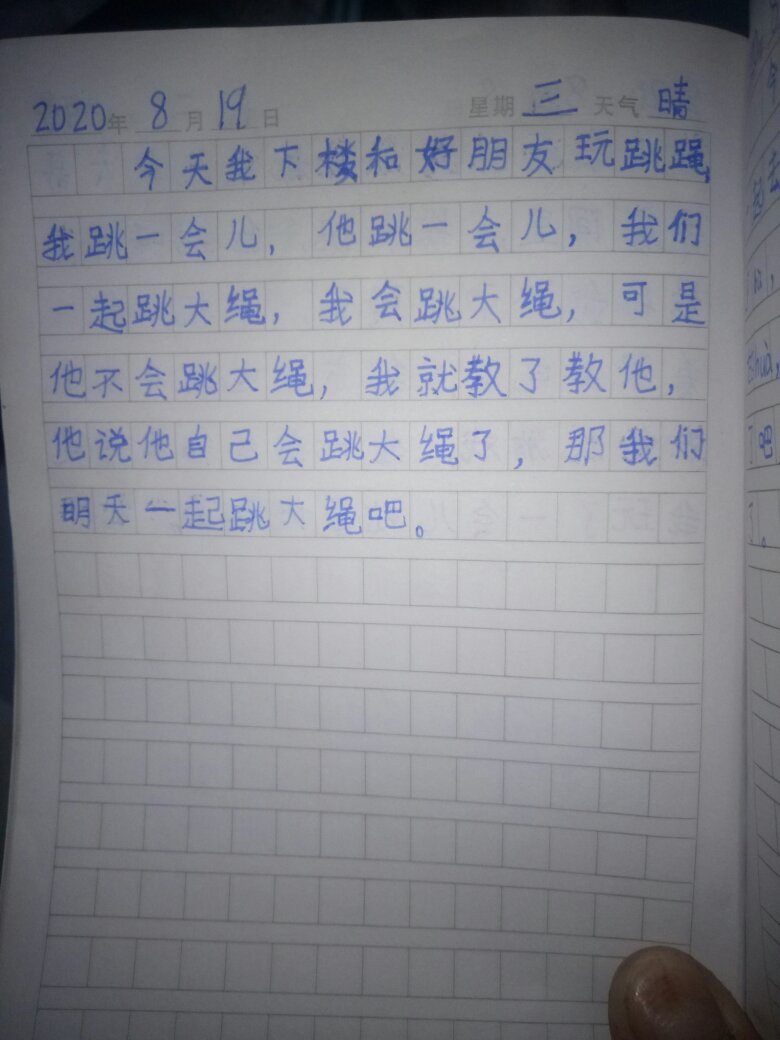 2020年 8月19日 星期三 天气 晴
今天我下楼和好朋友玩跳绳,
我跳一会儿，他跳一会儿，我们
一起跳大绳，我会跳大绳，可是
他不会跳大绳，我就教了教他，
他说他自己会跳大绳了，那我们
明天一起跳大绳吧。
huà,
了吧